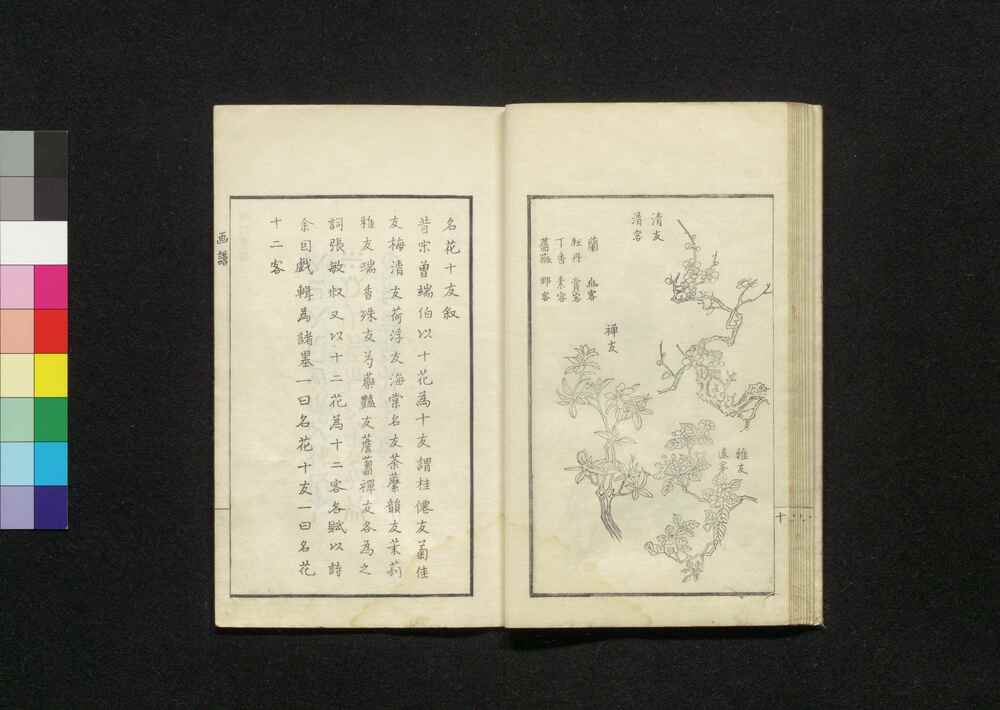 清友
清客
蘭 幽客
牡丹 賞客
丁香 素客
薔薇 野客
禅友
雅友
遠客
十
名花十友叙
昔宋曽端伯以十花為十友謂桂僊友菊佳
友梅清友荷浮友海棠名友荼蘼韻友茉莉
雅友瑞香殊友芍藥豔友薝蔔禪友各為之
詞張敏叔又以十二花為十二客各賦以詩
余因戯輯為諸墨一曰名花十友一曰名花
十二客
画譜